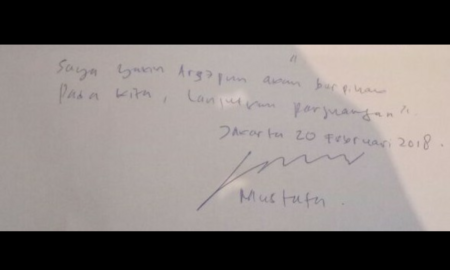 "
Saya yakin akan berpihak
Pada kita, lanjutkan perjuangan".
Jakarta 20 Februari 2018.
Mustafa.